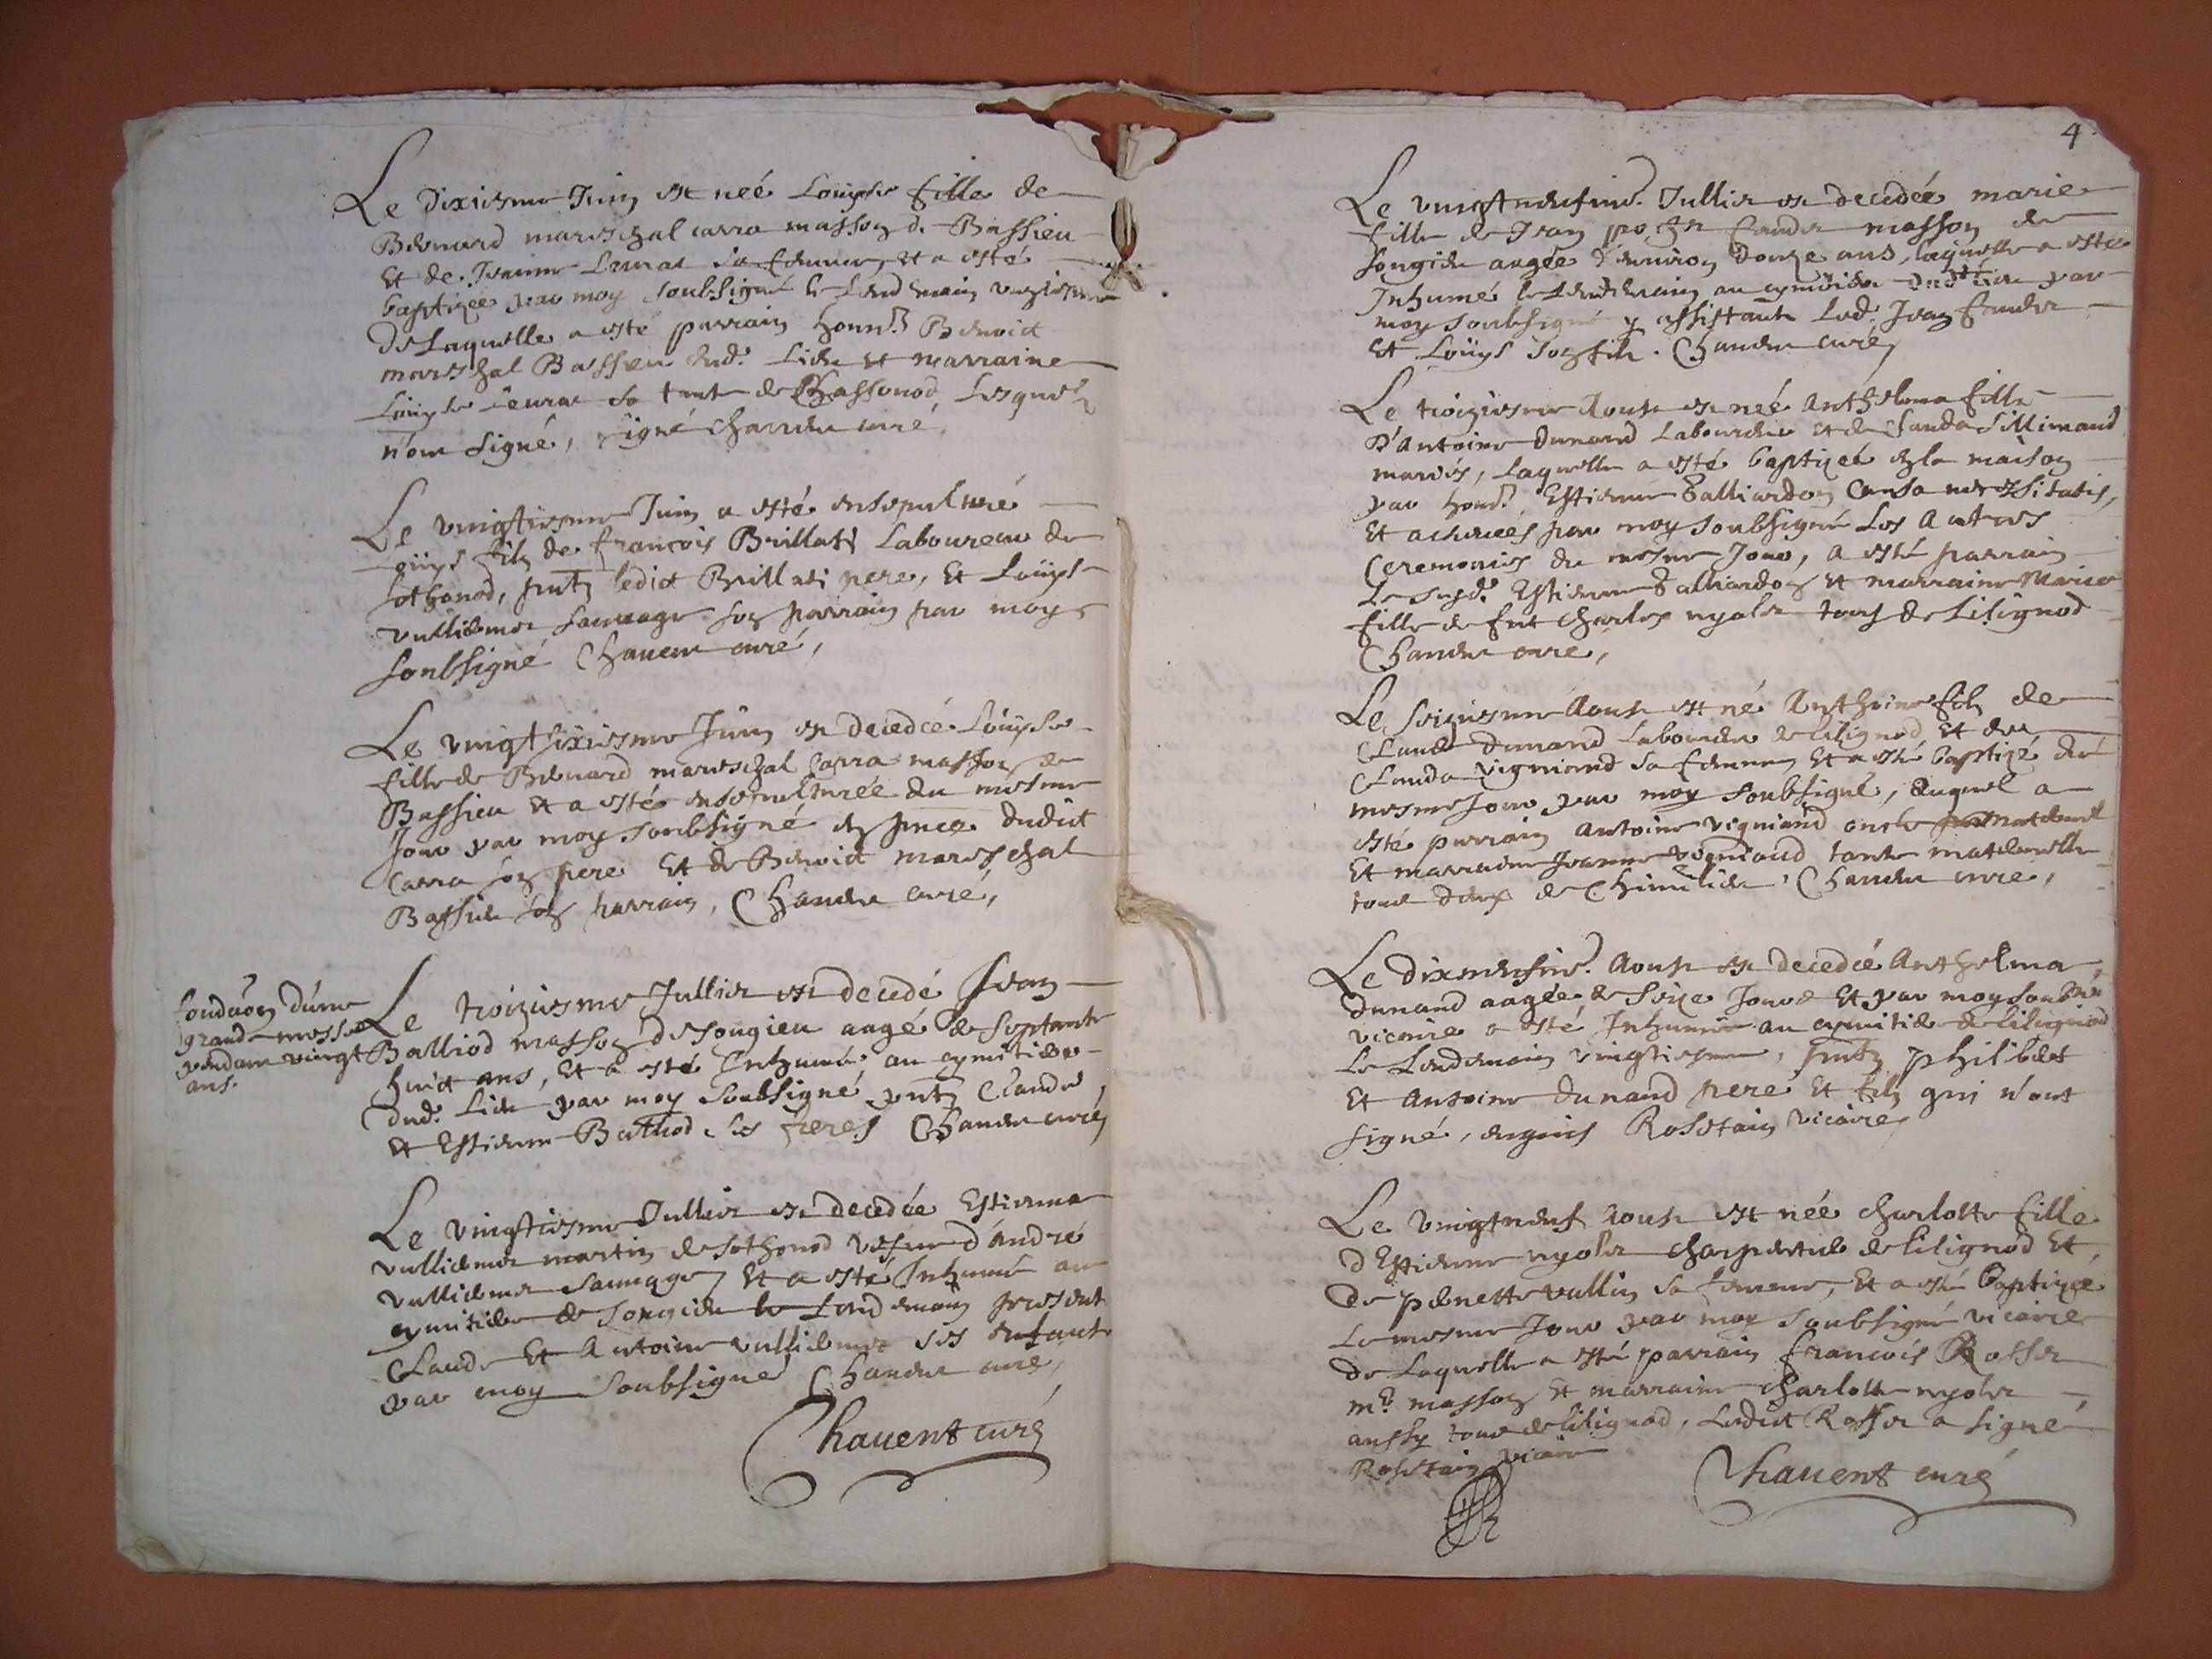 Le dixiesme Juin est neé Louyse fille de
Bernard mareschal carra masson de Bassieu
et de Jeanne sa femme, et a esté
baptizée par moy soubsigné le lendemain
de Laquelle a esté parrain honn.^e Benoict
mareschal Bassieu dud. Lieu et marraine
Louyse sa tante de Chassonod, Lesquels
n'ont signé, signé Chavent curé,
Le vingtiesme Juin a esté ensepulturé
Loüys filz de françois Brillati Laboureur de
Sothonod, pntz ledict Brillati pere, et Loüys
vulliemoz sauvage son parrain par moy
soubsigné Chavent curé,
Le vingtsixiesme Juin est decedée Loüyse
fille de Bernard mareschal carra masson de
Bassieu et a esté ensepulturée du mesme
Jour par moy soubsigné en pnce dudict
Carra son pere et de Benoict mareschal
Bassieu son parrain, Chavent curé,
fondaõn dúne
grand messe
pendant vingt
ans.
Le troiziesme Jullier est decedé Jean
Balliod masson de Songieu aagé de septante
huict ans, et a esté Inhumé au cymitiere
dud. Lieu par moy soubsigné pntz Claude
et Estienne Balliod ses freres Chavent curé
Le vingtiesme Jullier est decedée Estienna
vulliemoz martin de Sothonod vefve d'André
vulliemoz sauvage, et a esté Inhumée au
cymitiere de Songieu le Lendemain present
Claude et Antoine vulliemoz ses enfants
par moy soubsigné Chavent curé,
Chavent curé
4
Le vingtneufime. Jullier est decedée marie
fille de Jean masson de
Songieu aagée d'environ douze ans, laquelle a esté
Inhumé le Lendemain au cymitiere dud. Lieu par
moy soubsigné y assistants Led. Jean
et Loüys son filz. Chavent curé
Le troiziesme Aoust est neé Anthelma fille
D'Antoine Dunand Laboureur et de Clauda Sillimand
mariés, Laquelle a esté baptizeé en la maison
par honn.^e Estienne Galliardon Causa necessitatis,
et acheveés par moy soubsigné Les Autres
Ceremonies du mesme Jour, a esté parrain
Le susd. Estienne Galliardon et marraine Marie
fille de feut Charles nyolet tous de Lilignod
Chavent curé,
Le seiziesme Aoust est né Anthoine filz de
Claude Dunand Laboureur de Lilignod et de
Clauda vigniand sa femme, et a esté baptizé du
mesme Jour par moy soubsigné, Duquel a
esté parrain Antoine vigniand oncle maternel
et marraine Jeanne vigniand tante maternelle
tous deux de Chimilieu, Chavent curé,
Le dixneufiíme. Aoust est decedeé Anthelma
Dunand aagée de seize Jours et par moy soubné
vicaire a esté Inhumée au cymitiere de Lilignod
le Lendemain vingtiesme, pntz philibert
et Antoine Dunand pere et filz qui n'ont
signé, enquis Rosstain vicaire
Le vingtneuf Aoust est née Charlotte fille
d'Estienne nyolet charpentier de Lilignod et
de pernette vullin sa femme, et a esté baptizée
Le mesme Jour par moy soubsigné vicaire
de Laquelle a esté parrain françois Rosset
m.^e masson et marraine Charlotte nyolet
aussy tous de Lilignod, Ledict Rosset a signé
Rosstain vicaire
Chavent curé